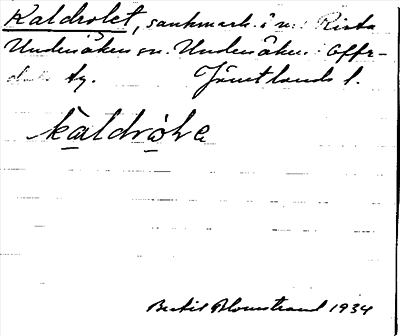 Kaldrolet, sankmark i n. Rista
Undersåkers sn. Undersåkers o. Offer-
dals tg. Jämtlands l.
kaldróḷe
Bertil Blomstrand 1934